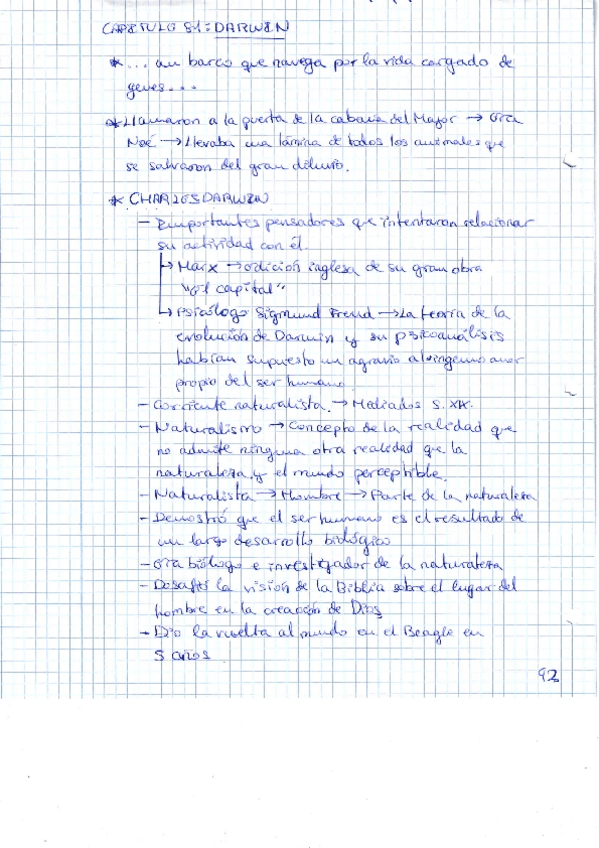 CAPITULO 31: DARWIN
* ... un barco que navega por la vida cargado de
genes...
* Llamaron a la puerta de la cabaña del Mayor → Era
Noé → Llevaba una lámina de todos los animales que
se salvaron del gran diluvio.
* CHARLES DARWIN
- Importantes pensadores que intentaron relacionar
su actividad con él.
↳ Marx → edición inglesa de su gran obra
"el capital"
↳ Psicólogo Sigmund Freud → La teoría de la
evolución de Darwin y su psicoanálisis
habían supuesto un agravio al ingenuo amor
propio del ser humano.
- Corriente naturalista. → Mediados S. XIX.
- Naturalismo → Concepto de la realidad que
no admite ninguna otra realidad que la
naturaleza y el mundo perceptible.
- Naturalista → Hombre → Parte de la naturaleza
- Demostró que el ser humano es el resultado de
un largo desarrollo biológico
- Era biólogo e investigador de la naturaleza
- Desafió la visión de la Biblia sobre el lugar del
hombre en la creación de Dios
- Dio la vuelta al mundo en el Beagle en
5 años.
92